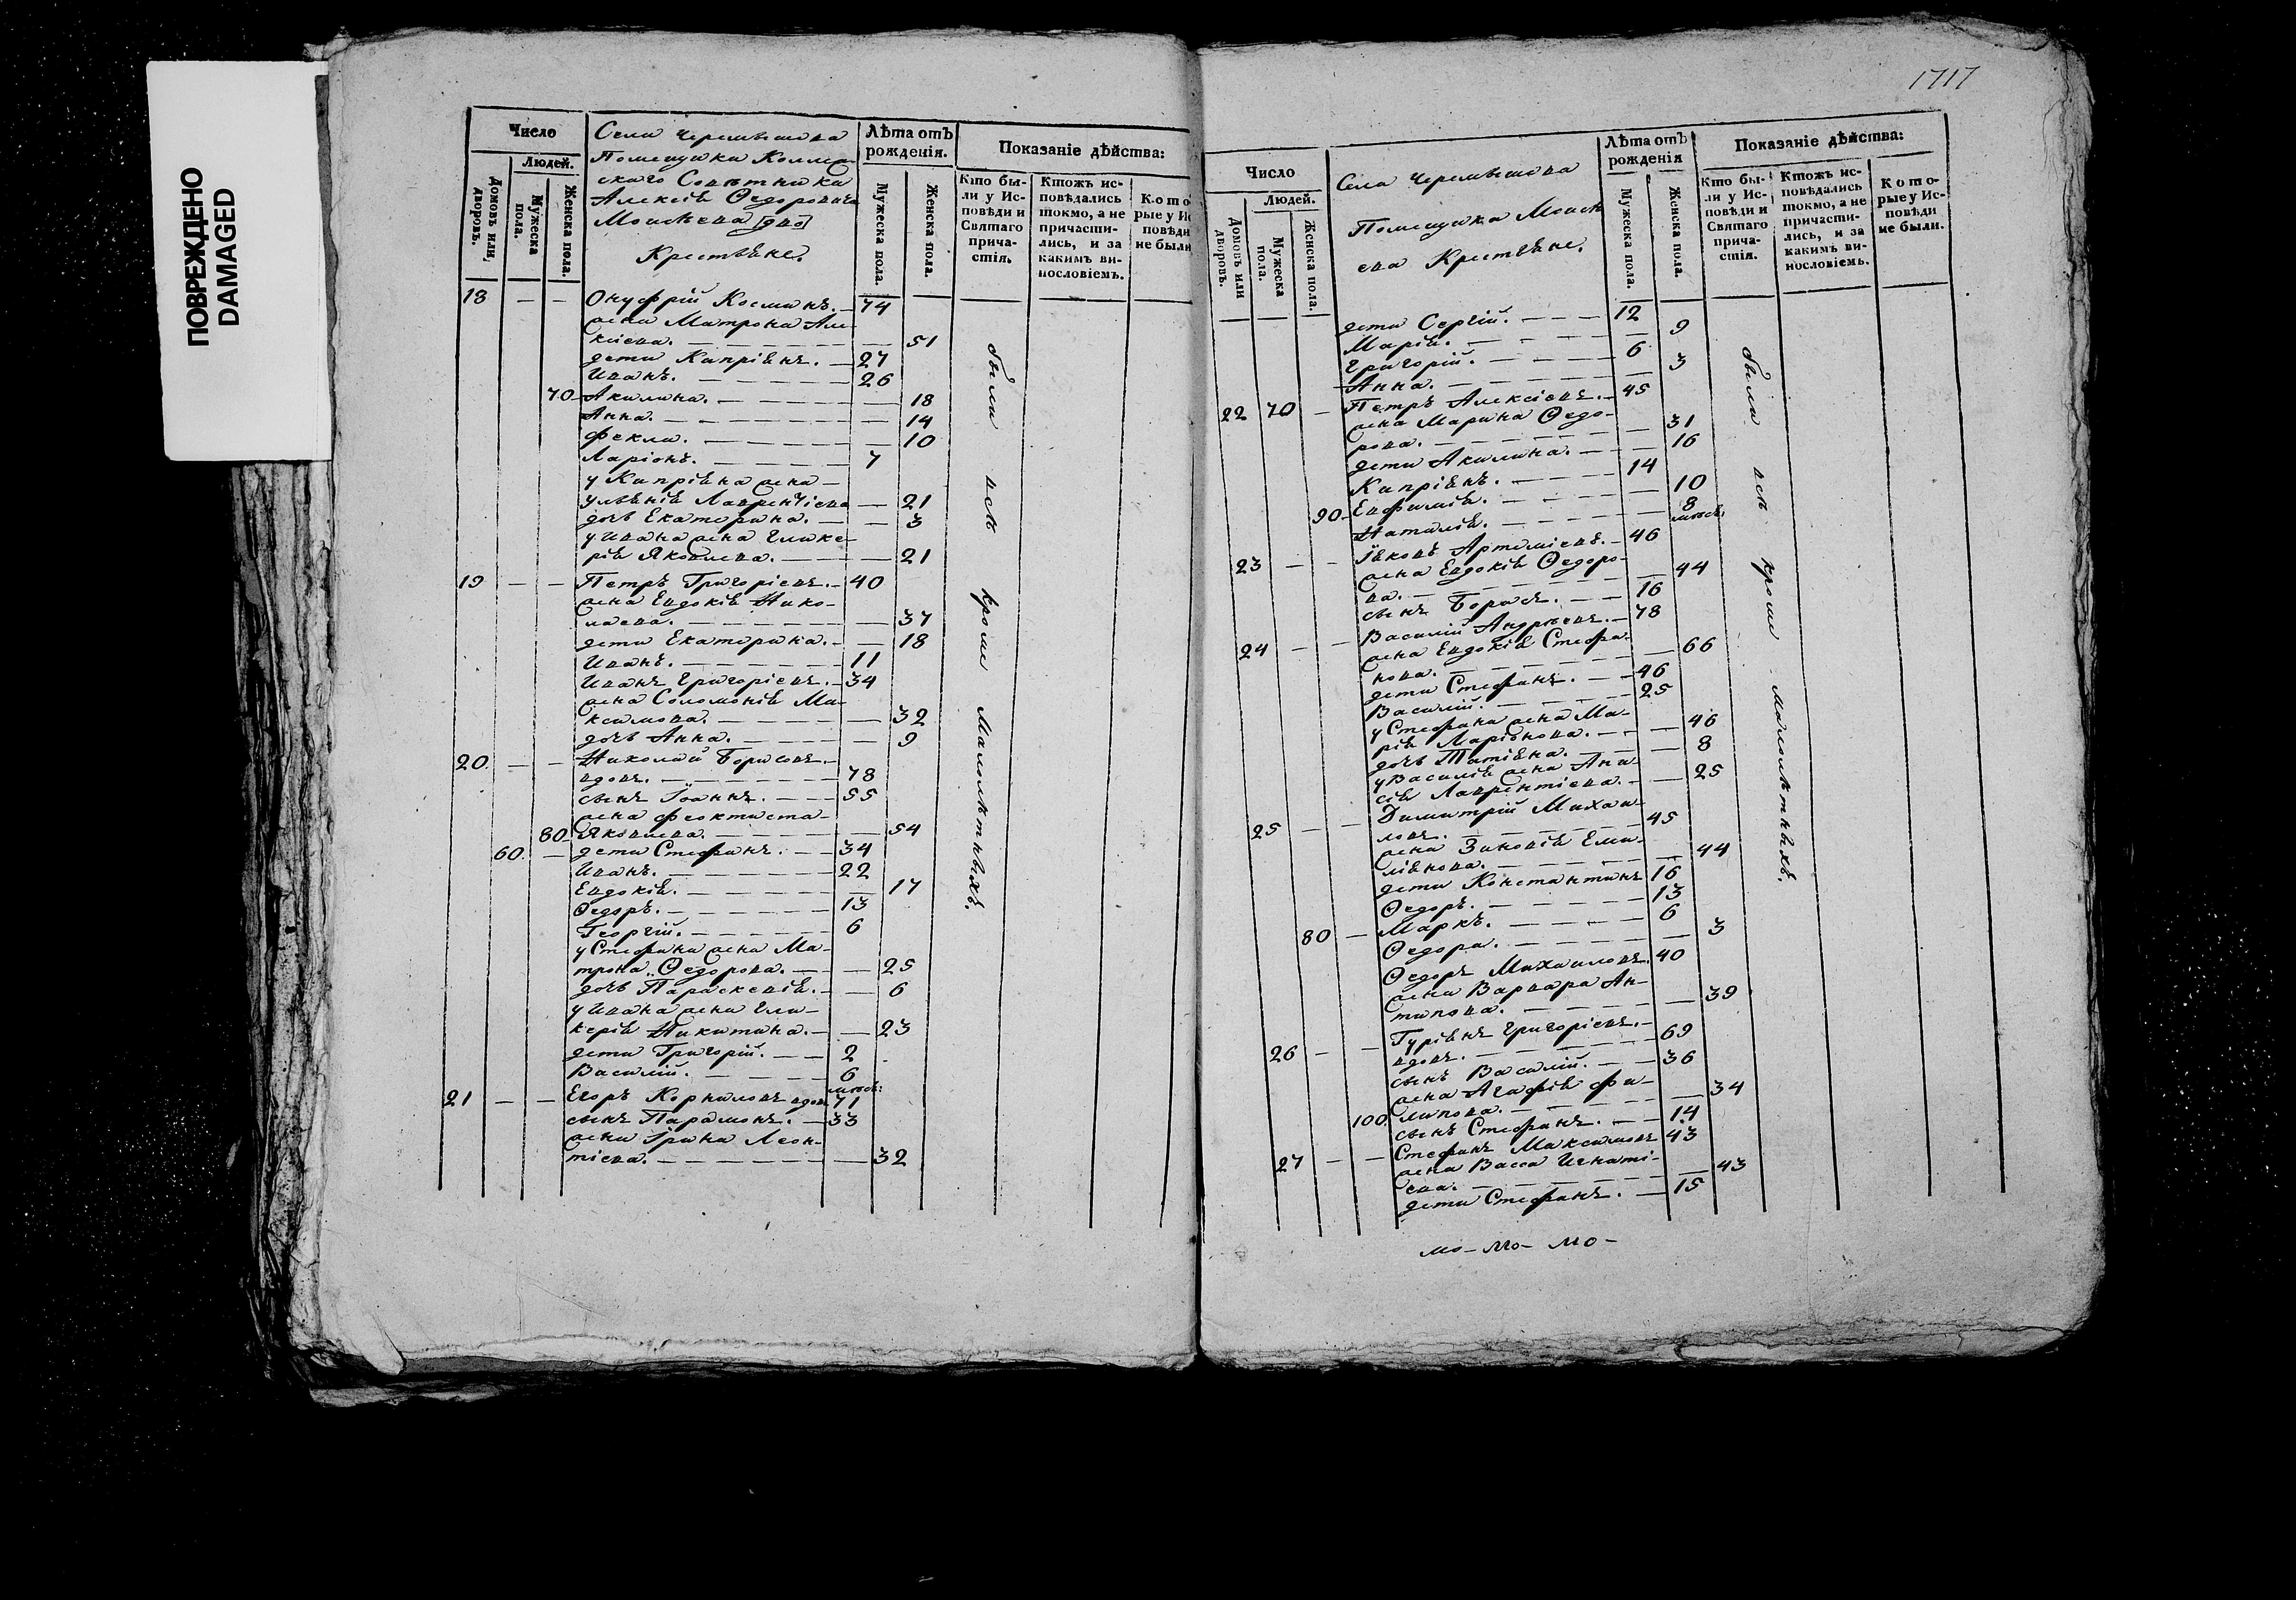 ПОВРЕЖДЕНО
DAMAGED
Число
Людей.
Домовъ или дворовъ.
Мужеска пола.
Женска пола.
Села Черемышева
Помещика Коллеж
скаго Советника
Алексѣя Ѳедоровича
Крестьяне.
Лѣта отъ
рожденія.
Мужеска пола.
Женска пола.
Показаніе дѣйства:
Кто бы-
ли у Ис-
повѣди и
Святаго
прича-
стія.
Ктожъ ис-
повѣдались
токмо, а не
причасти-
лись, и за
какимъ ви-
нословіемъ.
Кото
рые у Ис
повѣди
не были
18 — — Онуфрій Косминъ. — 74
жена Матрона Але-
ксіева. — — 51
дети Капріянъ. — 27
Иванъ. — 26
70 — Акилина. — — 18
Анна. — — 14
Фекла. — — 10
Ларіонъ. — 7
у Капріяна жена
Ульянія Лаврентіева — 21
дочь Екатерина. — — 3
у Ивана жена Глике-
рія Яковлева. — — 21
19 — — Петръ Григоріевъ. — 40
жена Евдокія Нико-
лаева. — — 37
дети Екатерина. — — 18
Иванъ. — 11
Иванъ Григоріевъ. — 34
жена Соломонія Ма-
ксимова. — — 32
дочь Анна. — — 9
20 — — Николай Борисовъ.
вдовъ. — 78
сынъ Іоаннъ. — 55
жена Феоктиста
80 — Яковлева. — — 54
60 — дети Стефанъ. — 34
Иванъ. — 22
Евдокія. — — 17
Ѳедоръ. — 13
Георгій. — 6
у Стефана жена Ма-
трона Ѳедорова. — — 25
дочь Параскевія. — — 6
у Ивана жена Гли-
керія Никитина. — — 23
дети Григорій. — 2
Василій. — 6
месѣ:
21 — — Егоръ Корниловъ вдов 71
сынъ Парамонъ. — 33
жена Ирина Леон-
тіева. — — 32
были всѣ кроме малолѣтныхъ.
1717
Число
Людей.
Домовъ или дворовъ.
Мужеска пола.
Женска пола.
Села Черемышева
Помещика Моисѣ
ева Крестьяне.
Лѣта отъ
рожденія
Мужеска пола.
Женска пола.
Показаніе дѣйства:
Кто бы-
ли у Ис-
повѣди и
Святаго
прича-
стія.
Ктожъ ис-
повѣдались
токмо, а не
причасти-
лись, и за
какимъ ви-
нословіемъ.
Кото-
рые у Ис-
повѣди
не были.
дети Сергій. — 12
Марія. — — 9
Григорій. — 6
Анна. — — 3
22 70 — Петръ Алексіевъ. — 45
жена Марина Ѳедо-
рова. — — 31
дети Акилина. — — 16
Капріянъ. — 14
90 — Евфимія. — — 10
Наталія. — — 8
месѣ:
23 — — Іяковъ Артеміевъ. — 46
жена Евдокія Ѳедоро-
ва. — — 44
сынъ Борисъ. — 16
24 — — Василій Андрѣевъ. — 78
жена Евдокія Стефа-
нова. — — 66
дети Стефанъ. — 46
Василій. — 25
у Стефана жена Ма-
рія Ларіонова. — — 46
дочь Татіяна. — — 8
у Василія жена Ана-
сія Лаврентіева. — — 25
25 — — Димитрій Михаи-
ловъ. — 45
жена Зиновія Еми-
ліянова. — — 44
дети Константинъ 16
Ѳедоръ. — 13
80 — Маркъ. — 6
Ѳедора. — — 3
Ѳедоръ Михаиловъ. 40
жена Варвара Ан-
типова. — — 39
26 — — Гуріянъ Григоріевъ.
вдовъ. — 69
сынъ Василій. — 36
жена Агафія Фи-
100 липова. — — 34
сынъ Стефанъ. — 14
27 — — Стефанъ Максимовъ 43
жена Васса Игнаті-
ева. — — 43
дети Стефанъ. — 15
были всѣ кроме малолѣтныхъ.